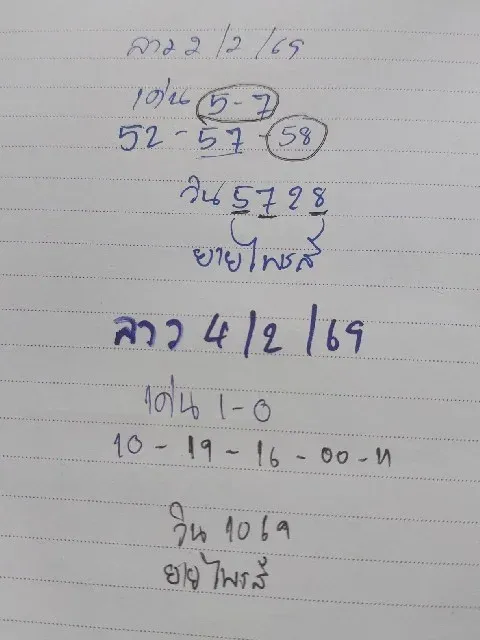 ลาว 2/2/69
เด่น 5-7
52-57-58
วิน 5728
ยายไพรส์
ลาว 4/2/69
เด่น 1-0
10-19-16-00-11
วิน 1069
ยายไพรส์